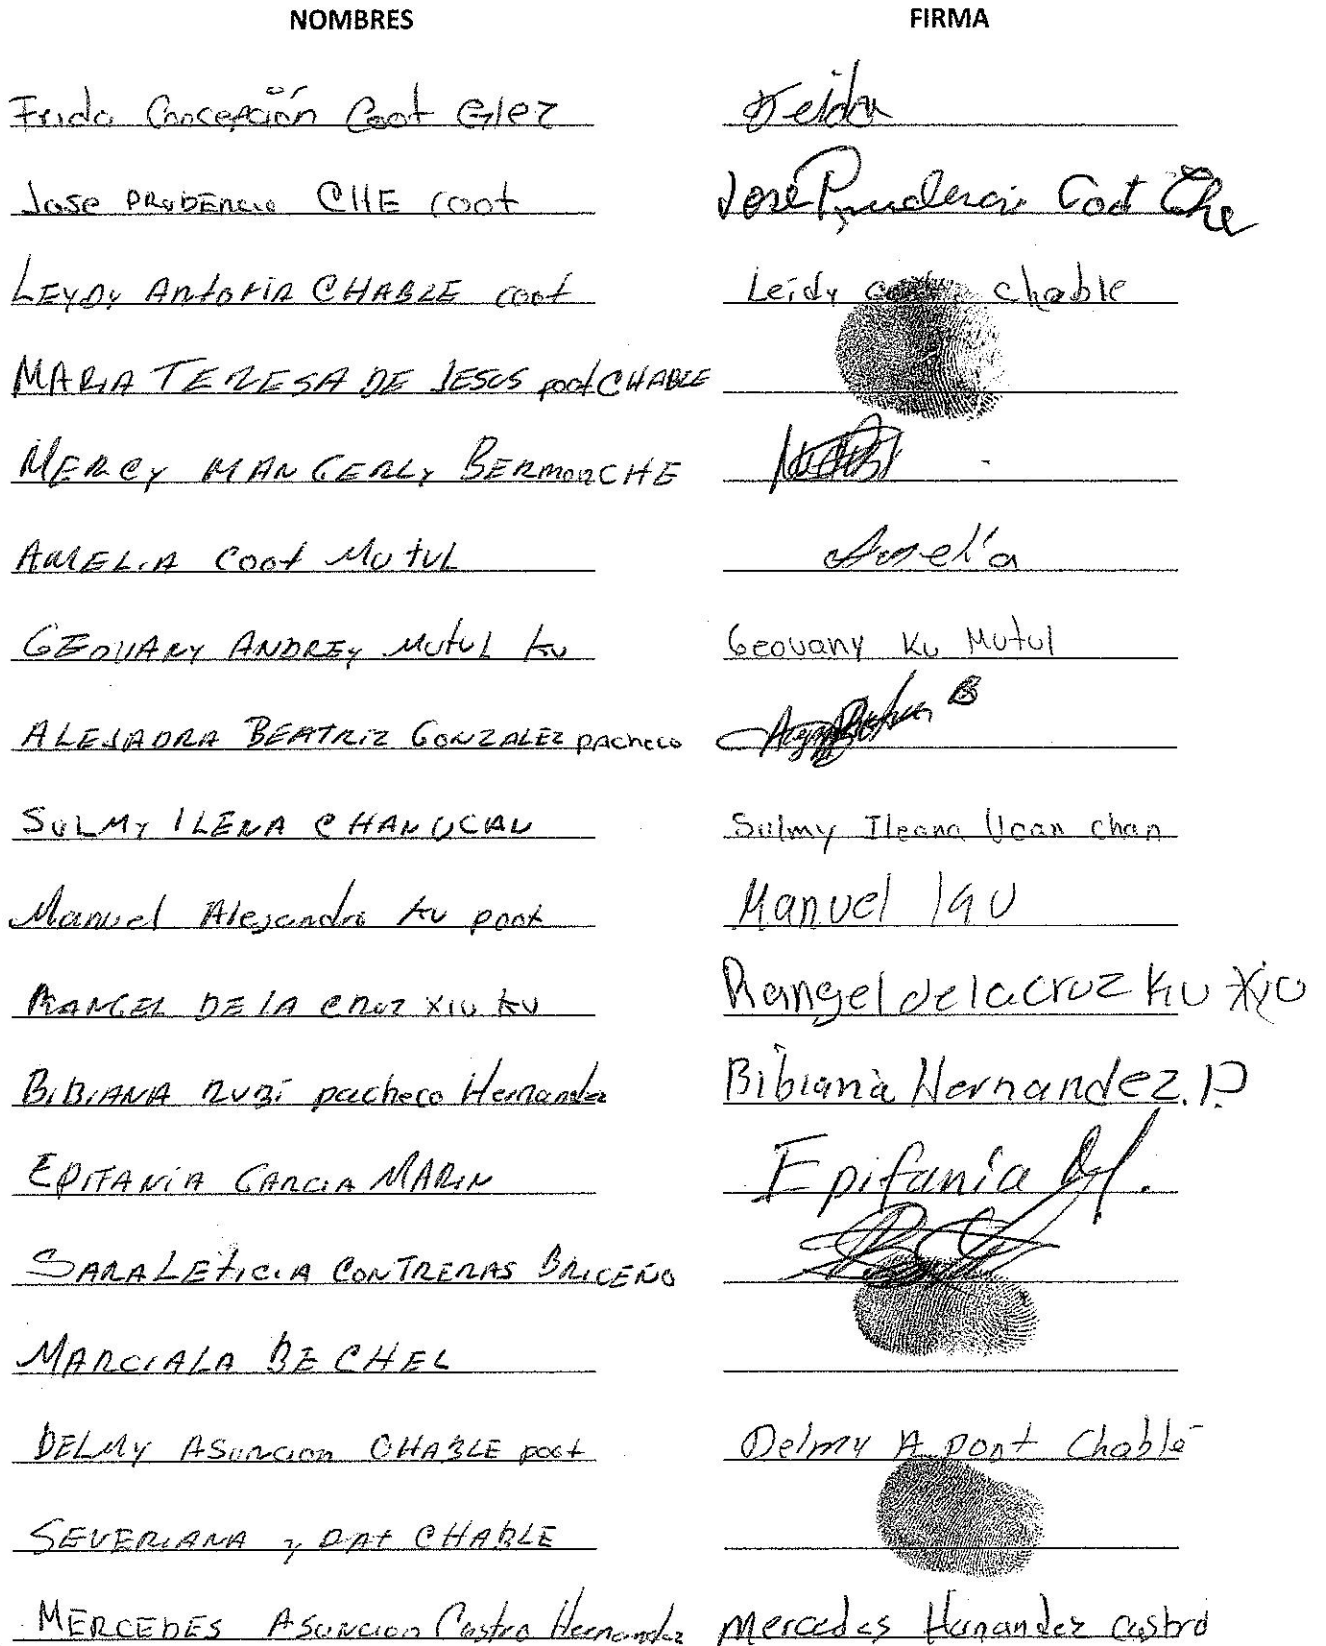 NOMBRES FIRMA
Frida Concepción Coot Glez Feida
Jose PRUDENCIO CHE Coot José Prudencio Coot Che
LEYDY ANTONIA CHABLE coot Leidy chable
MARIA TERESA DE JESUS poot CHABLE
MERCY MANGERLY CHE
AMELIA Coot Mutul Amelia
GEOVANY ANDREY Mutul Ku Geovany Ku Mutul
ALEJADRA BEATRIZ GONZALEZ pacheco
SULMY ILENA CHAN UCAN Sulmy Ileana Ucan chan
Manuel Alejandro Ku poot Manuel
RANGEL DE LA CRUZ XIU KU Rangel de la cruz Ku Xiu
BIBIANA RUBÍ pacheco Hernandez Bibiana Hernandez.P
EPIFANIA GARCIA MARIN Epifania
SARA LETICIA CONTRERAS BRICEÑO
MARCIALA BE CHEL
DELMY ASUNCION CHABLE poot Delmy A poot Chablé
SEVERIANA CHABLE
MERCEDES ASUNCION Castro Hernandez Mercedes Hernandez castro